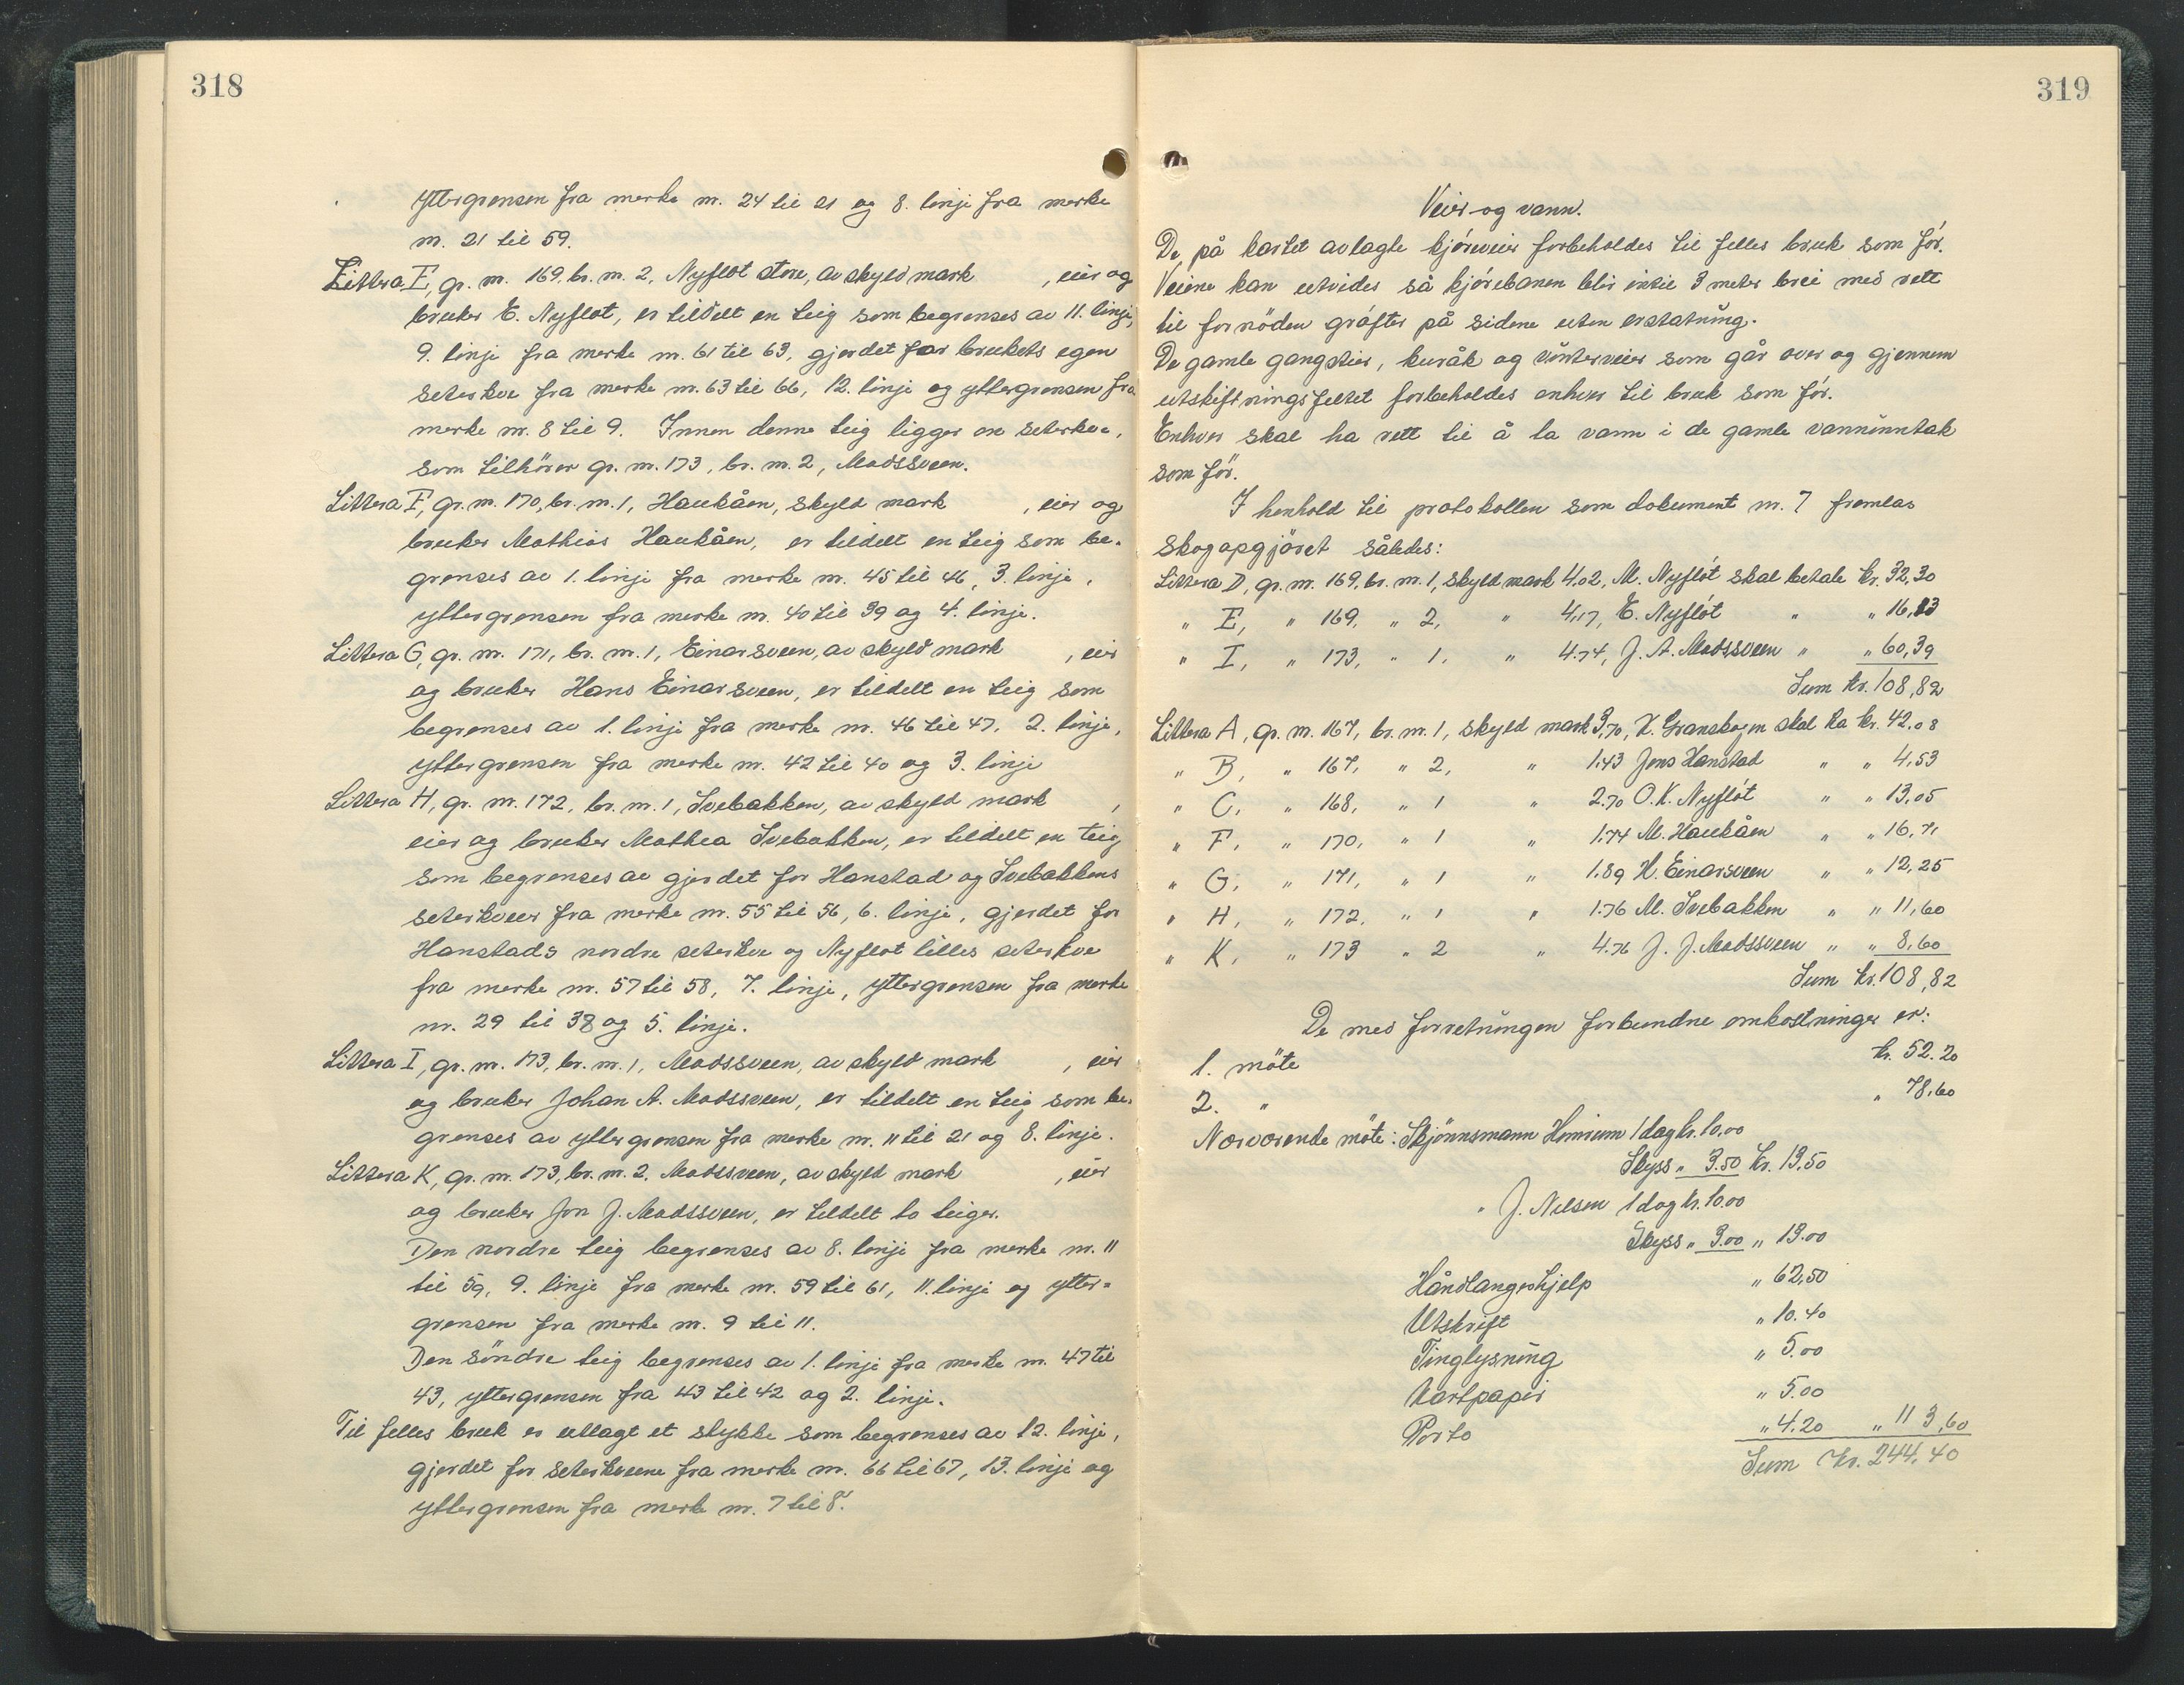 318
yttergrensen fra merke nr. 24 til 21 og 8. linje fra merke
nr. 21 til 59.
Littera E, gr. nr. 169, br. nr. 2, Nyflot store, av skyld mark , eier og
bruker E. Nyflot, er tildelt en teig som begrenses av 11. linje,
9. linje fra merke nr. 61 til 63, gjerdet for brukets egen
seterkve fra merke nr. 63 til 66, 12. linje og yttergrensen fra
merke nr. 8 til 9. Innen denne teig ligger en seterkve,
som tilhörer gr. nr. 173, br. nr. 2, Madssveen.
Littera F, gr. nr. 170, br. nr. 1, Haukåen, skyld mark , eier og
bruker Mathias Haukåen, er tildelt en teig som be-
grenses av 1. linje fra merke nr. 45 til 46, 3. linje,
yttergrensen fra merke nr. 40 til 39 og 4. linje.
Littera G, gr. nr. 171, br. nr. 1, Einarsveen, av skyld mark , eier
og bruker Hans Einarsveen, er tildelt en teig som
begrenses av 1. linje fra merke nr. 46 til 47, 2. linje,
yttergrensen fra merke nr. 42 til 40 og 3. linje
Littera H, gr. nr. 172, br. nr. 1, Svebakken, av skyld mark ,
eier og bruker Mathea Svebakken, er tildelt en teig
som begrenses av gjerdet for Hanstad og Svebakkens
seterkveer fra merke nr. 55 til 56, 6. linje, gjerdet for
Hanstads nordre seterkve og Nyflot lilles seterkve
fra merke nr. 57 til 58, 7. linje, yttergrensen fra merke
nr. 29 til 38 og 5. linje.
Littera I, gr. nr. 173, br. nr. 1, Madssveen, av skyld mark , eier
og bruker Johan A. Madssveen, er tildelt en teig som be-
grenses av yttergrensen fra merke nr. 11 til 21 og 8. linje.
Littera K, gr. nr. 173, br. nr. 2, Madssveen, av skyld mark , eier
og bruker Jon J. Madssveen, er tildelt to teiger.
Den nordre teig begrenses av 8. linje fra merke nr. 11
til 59, 9. linje fra merke nr. 59 til 61, 11. linje og ytter=
grensen fra merke nr. 9 til 11.
Den söndre teig begrenses av 1. linje fra merke nr. 47 til
43, yttergrensen fra 43 til 42 og 2. linje.
Til felles bruk er utlagt et stykke som begrenses av 12. linje,
gjerdet for seterkveene fra merke nr. 66 til 67, 13. linje og
yttergrensen fra merke nr. 7 til 8.
319
Veier og vann.
De på kartet avlagte kjöreveier forbeholdes til felles bruk som för.
Veiene kan utvides så kjörebanen blir inntil 3 meter brei med rett
til fornöden gröfter på sidene uten erstatning.
De gamle gangstier, kuråk og vinterveier som går over og gjennem
utskiftningsfeltet forbeholdes enhver til bruk som för.
Enhver skal ha rett til å ta vann i de gamle vanninntak
som för.
I henhold til protokollen som dokument nr. 7 fremlas
skogopgjöret således:
Littera D, gr. nr. 169, br. nr. 1, skyld mark 4,02, M. Nyflöt skal betale kr. 32,30
" E, " 169, " 2, " 4,17, E. Nyflöt " " 16,13
" I, " 173, " 1, " 4.74, J. A. Madssveen " " 60,39
Sum kr. 108,82
Littera A, gr. nr. 167, br. nr. 1, skyld mark 3,70, K. Granskogen skal ha kr. 42,08
" B, " 167, " 2, " 1.43 Jens Hanstad " " 4,53
" C, " 168, " 1 " 2.70 O. K. Nyflöt " " 13,05
" F, " 170, " 1 " 1.74 M. Haukåen " " 16,71
" G, " 171, " 1 " 1.89 H. Einarsveen " " 12,25
" H, " 172, " 1 " 1.76 M. Svebakken " " 11,60
" K, " 173 " 2 " 4.76 J. J. Madssveen " " 8,60
Sum kr. 108,82
De med forretningen forbundne omkostninger er:
1. möte kr. 52.20
2. " " 78,60
Nærværende möte: Skjönnsmann Hovium 1 dag kr. 10,00
Skyss " 3.50 kr. 13,50
" J. Nilsen 1 dag kr. 10.00
Skyss " 3.00 " 13.00
Håndlangerhjelp " 62,50
Utskrift " 10.40
Tinglysning " 5.00
Kartpapir " 5.00
Porto " 4.20 " 113,60
Sum kr. 244,40